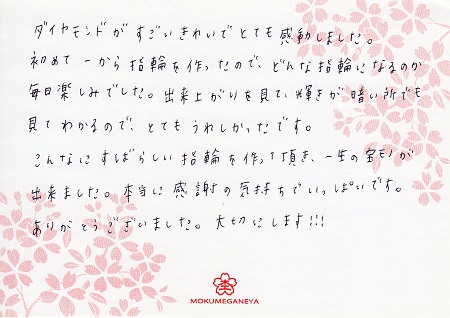 ダイヤモンドがすごいきれいでとても感動しました。
初めて一から指輪を作ったので、どんな指輪になるのか
毎日楽しみでした。出来上がりを見て、輝きが暗い所でも
見てわかるので、とてもうれしかったです。
こんなにすばらしい指輪を作って頂き、一生の宝モノが
出来ました。本当に感謝の気持ちでいっぱいです。
ありがとうございました。大切にします!!!
MOKUMEGANEYA